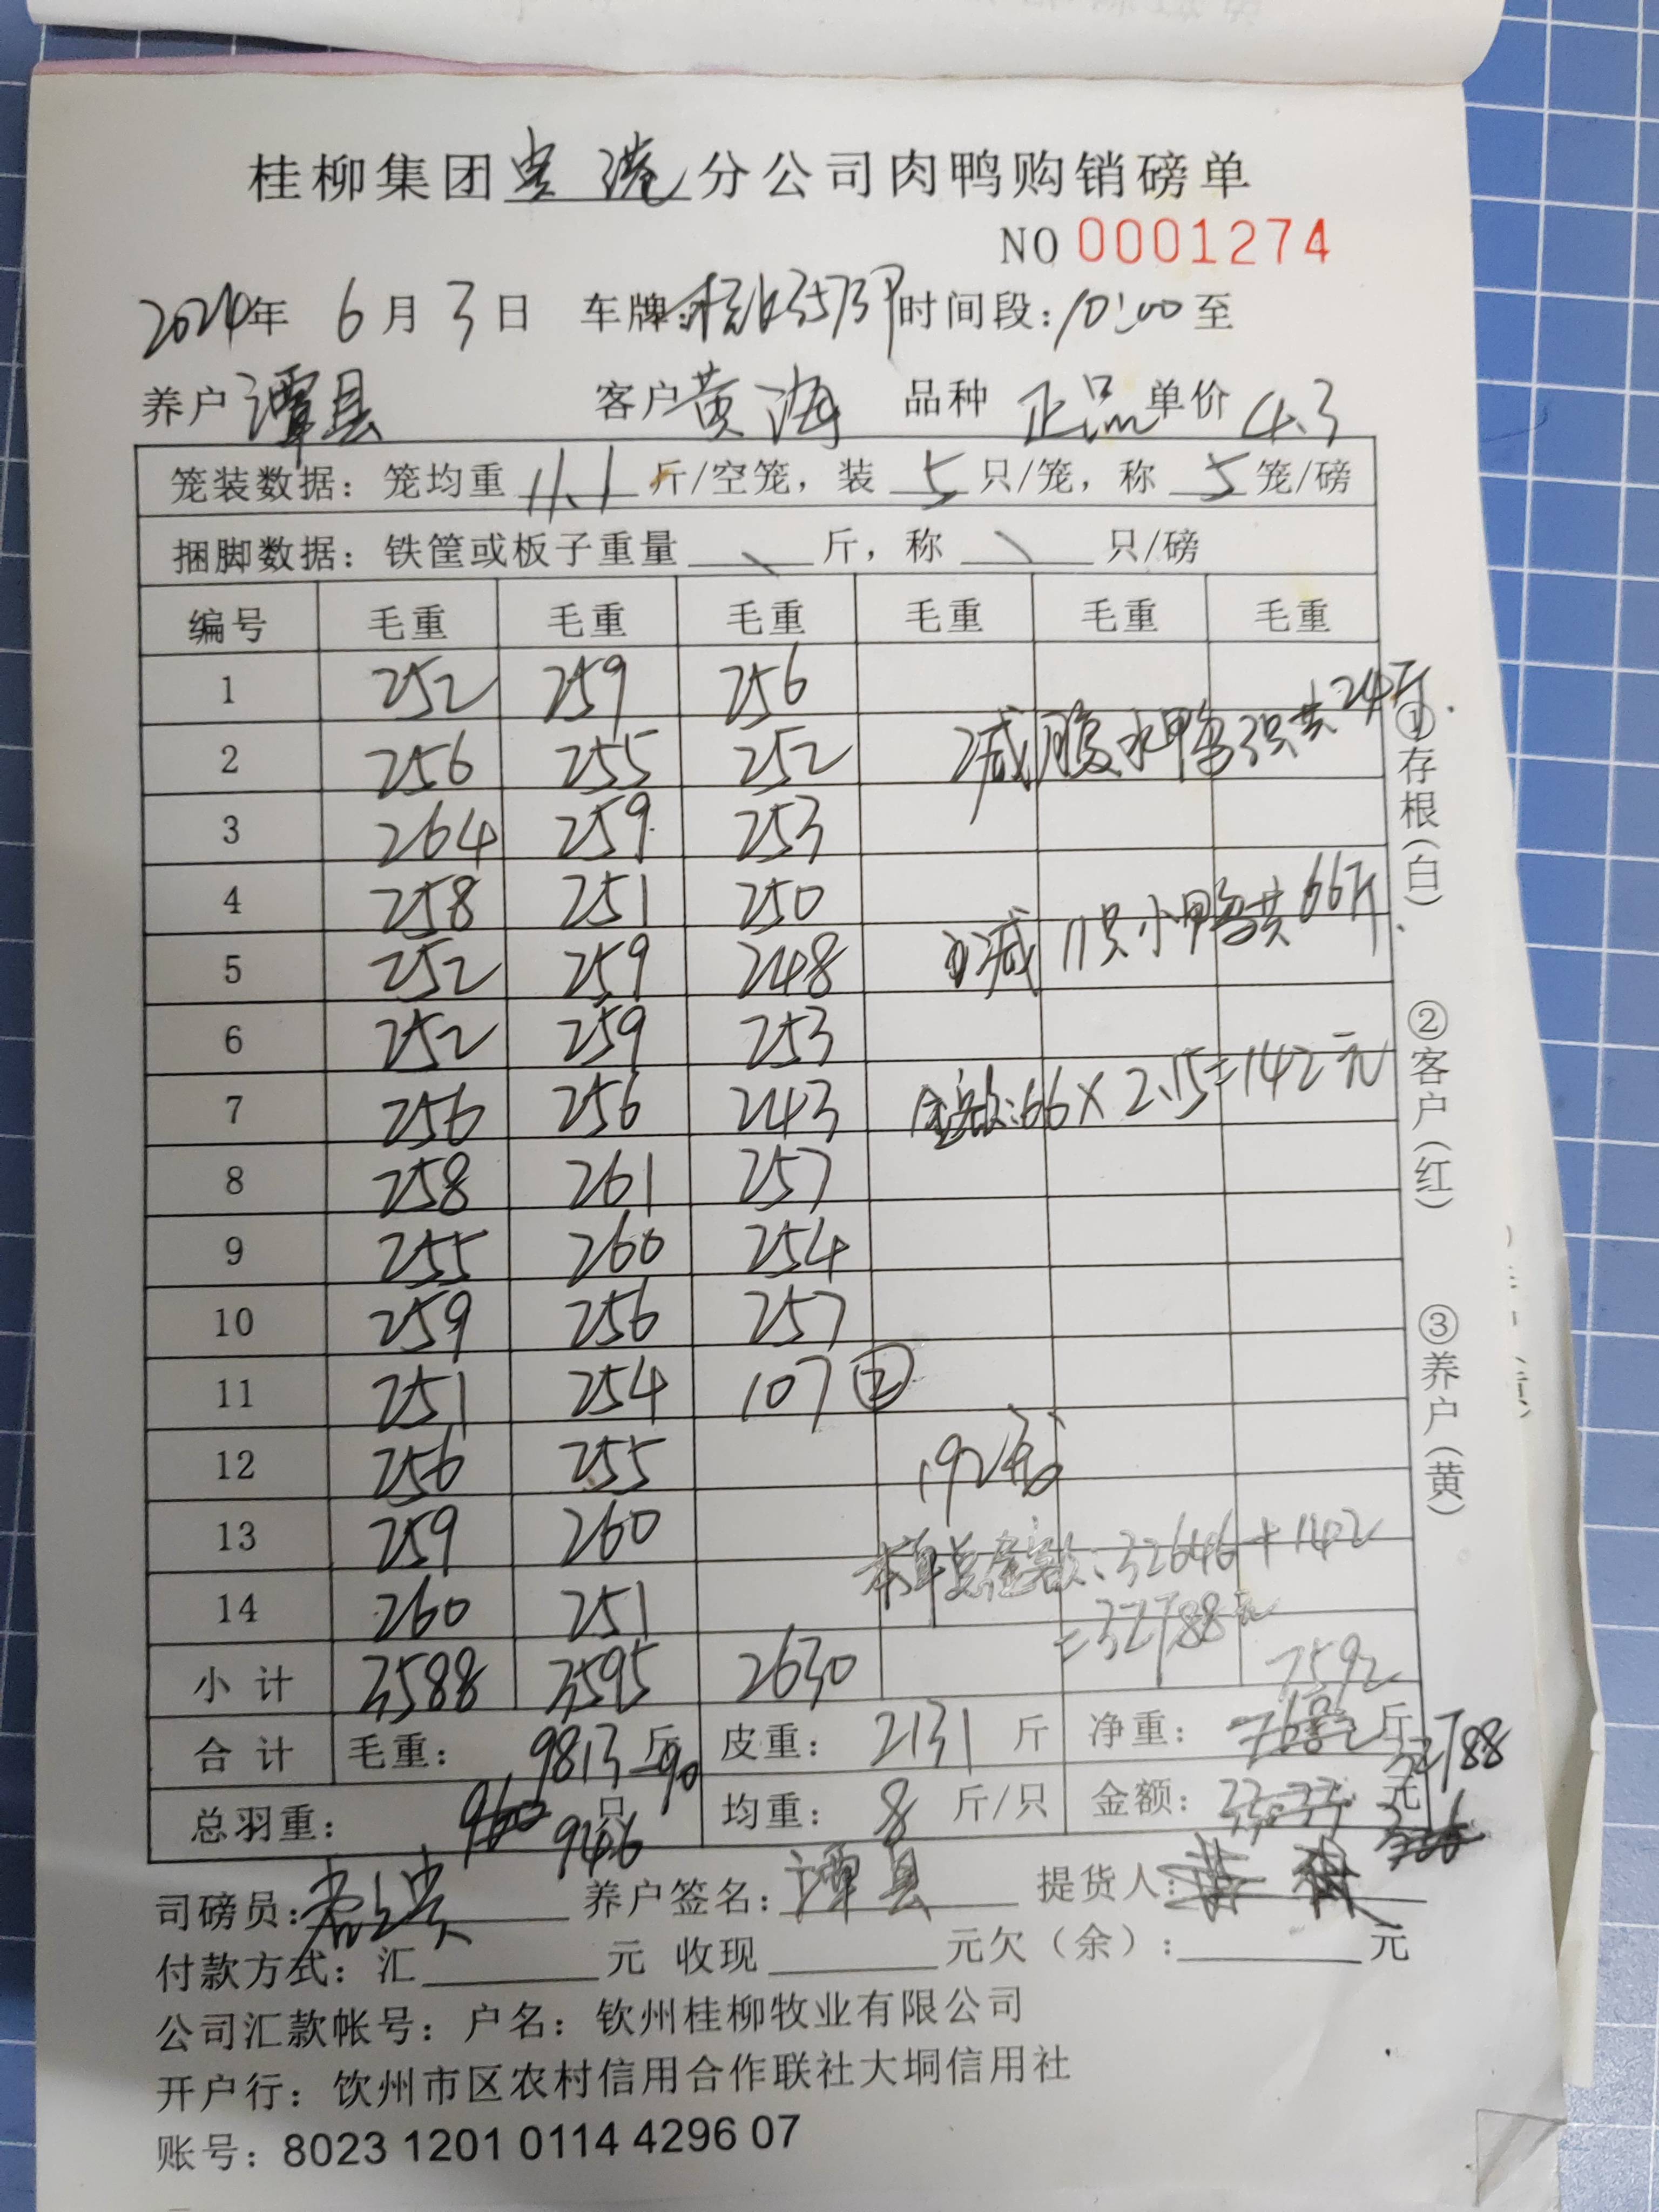 桂柳集团贵港分公司肉鸭购销磅单
NO 0001274
2024年 6月 3日 车牌: 时间段:10:00至
养户 谭县 客户 黄海 品种 正品 单价 4.3
笼装数据: 笼均重 11.1 斤/空笼, 装 5 只/笼, 称 5 笼/磅
捆脚数据: 铁筐或板子重量 \ 斤, 称 \ 只/磅
编号 毛重 毛重 毛重 毛重 毛重 毛重
1 252 259 256
2 256 255 252 减腹水鸭3只共24斤.
3 264 259 253
4 258 251 250
5 252 259 248 减 11只小鸭共66斤.
6 252 259 253
7 256 256 243 金额:66×2.15=142元
8 258 261 257
9 255 260 254
10 259 256 257
11 251 254 107 ②
12 256 255 192包
13 259 260 本单总金额:32646+142
14 260 251 =32788元
小计 3588 3595 2630 7592
合计 毛重: 9813斤 -90 皮重: 2131 斤 净重: 7682斤 32788
总羽重: 960 只 946 均重: 8 斤/只 金额: 元
司磅员: 养户签名: 谭县 提货人:
付款方式: 汇 元 收现 元欠(余): 元
公司汇款帐号: 户名: 钦州桂柳牧业有限公司
开户行: 钦州市区农村信用合作联社大垌信用社
账号: 8023 1201 0114 4296 07
①存根(白) ②客户(红) ③养户(黄)